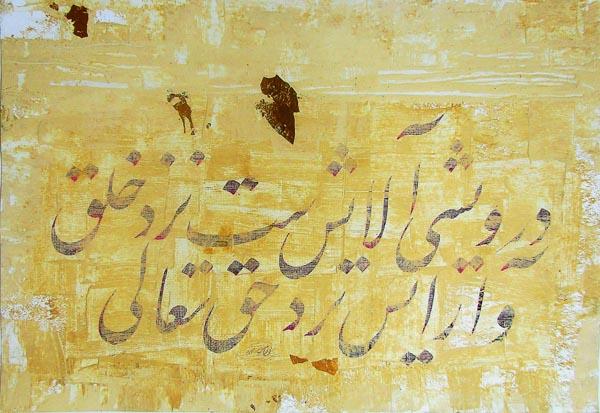 درویشی آلایش ست نزد خلق
و آرایش نزد حق تعالی